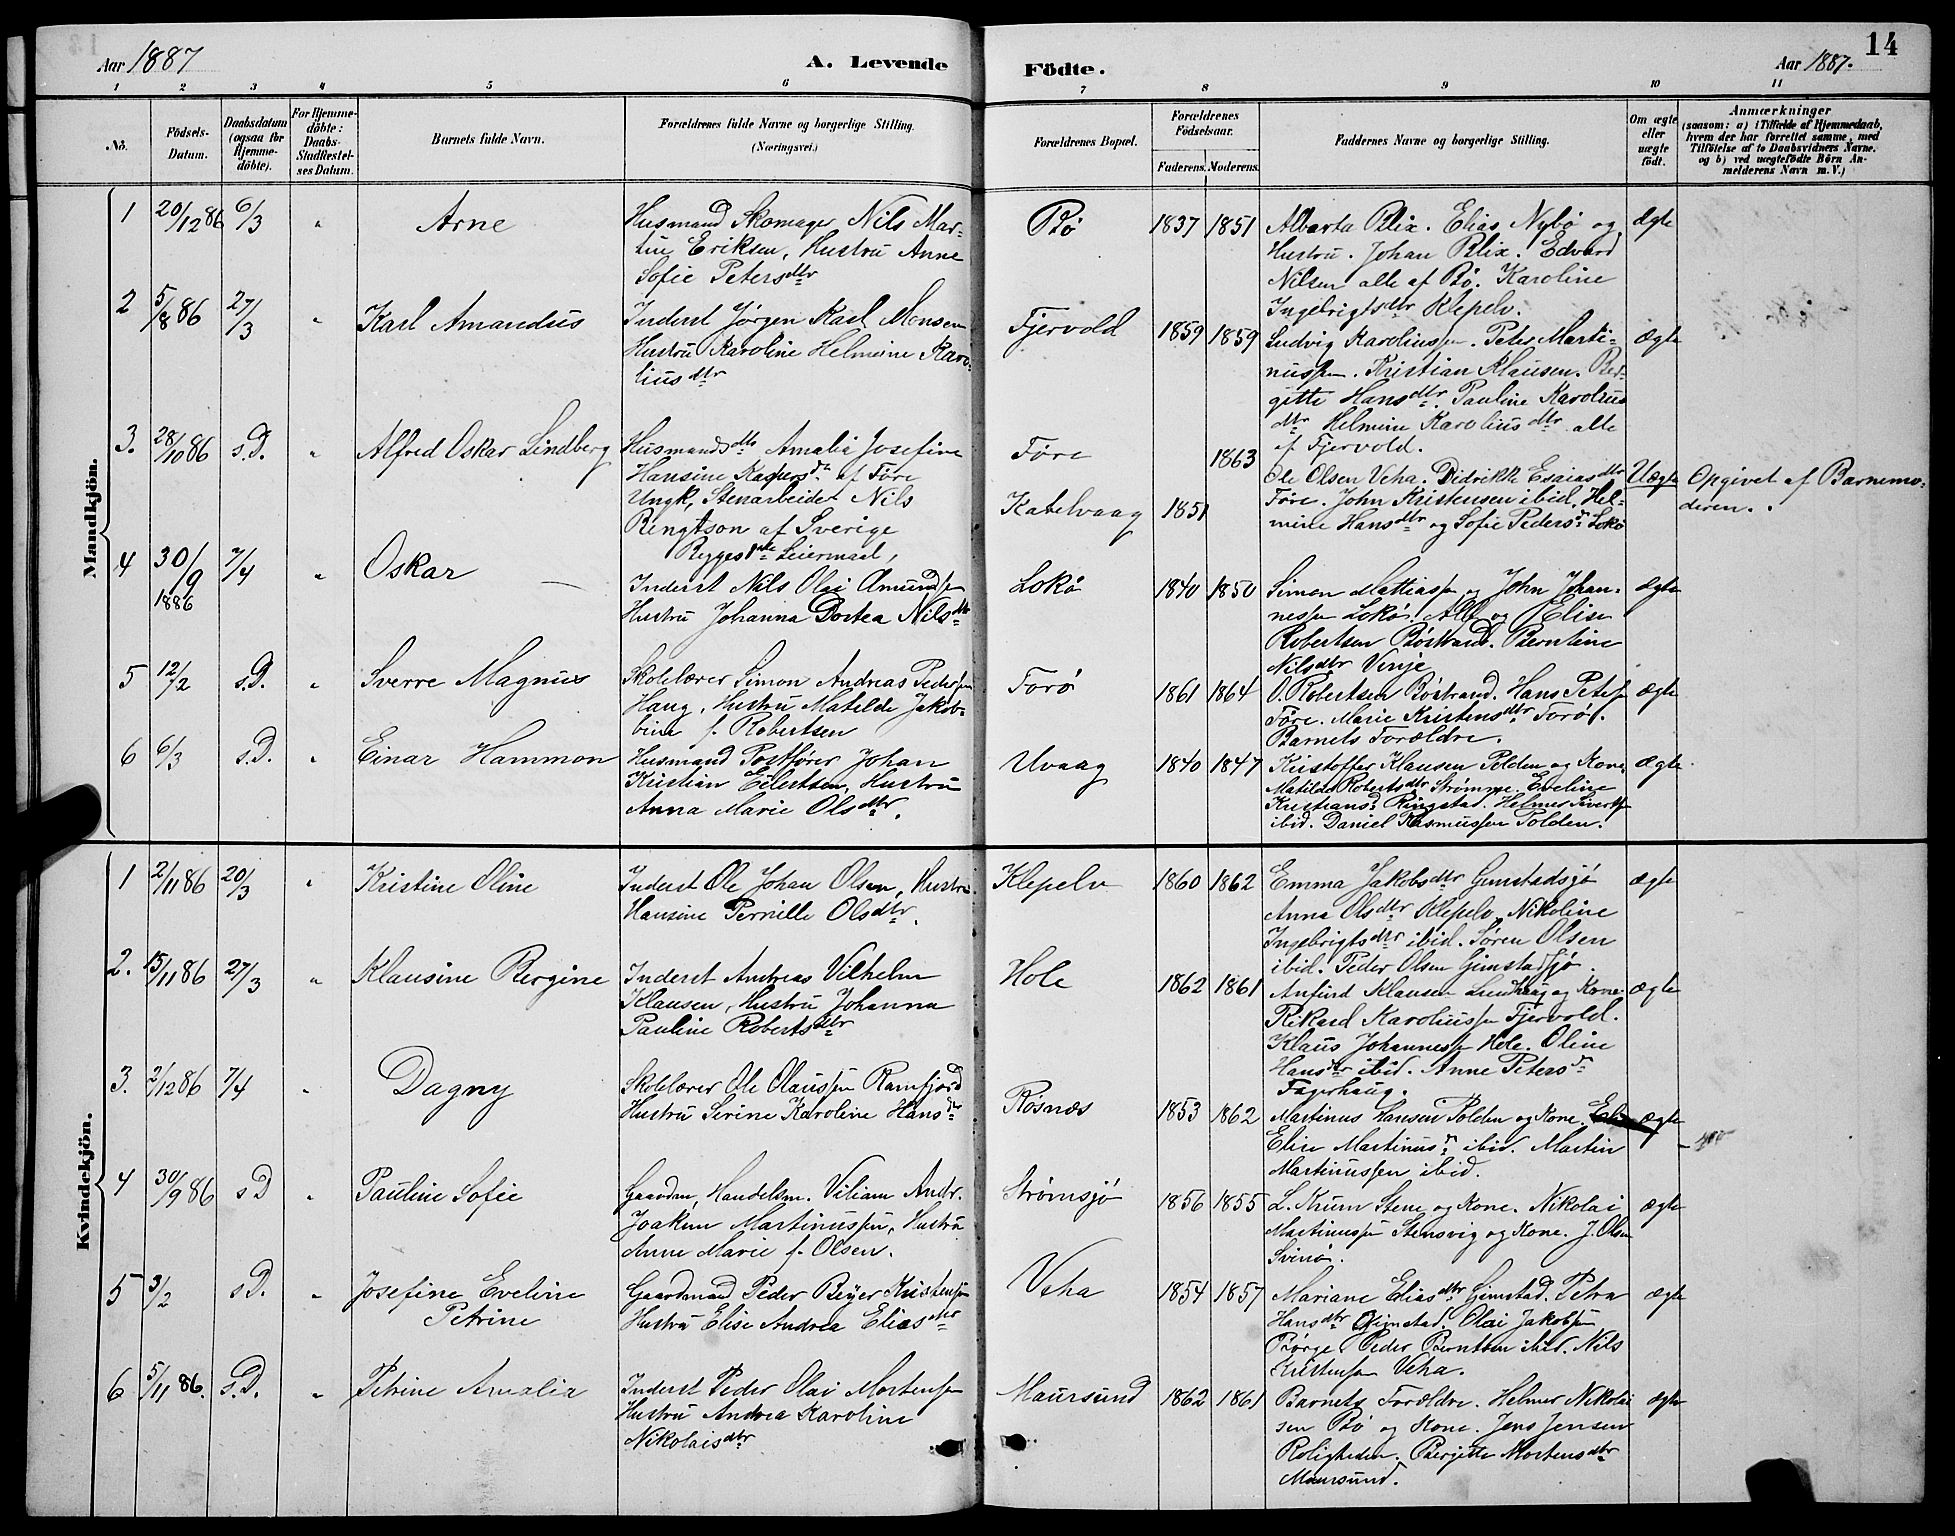 Aar 1887
A. Levende
Födte.
Aar 1887.
14
1 2 3 4 5 6 7 8 9 10 11
No.
Födsels-Datum.
Daabsdatum (ogsaa for Hjemme-döbte).
For Hjemme-döbte: Daabs-Stadfæstel-ses Datum.
Barnets fulde Navn.
Forældrenes fulde Navne og borgerlige Stilling.
(Næringsvei.)
Forældrenes Bopæl.
Forældrenes Födselsaar.
Faderens. Moderens.
Faddernes Navne og borgerlige Stilling.
Om ægte eller uægte födt.
Anmærkninger
(saasom: a) i Tilfælde af Hjemmedaab, hvem der har forrettet samme, med Tilföielse af to Daabsvidners Navne. og b) ved uægtefödte Börn An-melderens Navn m. V.)
Mandkjön.
1 20/12 86 6/3 " Arne
Husmand Skomager Nils Mar-
tin Eriksen, Hustru Anne
Sofie Petersdtr
Bö 1837 1851
Alberta Blix. Elias Nybö og
Hustru. Johan Blix. Edvard
Nilsen alle af Bö. Karoline
Ingebrigtsdtr Klepelv.
ægte
2 5/8 86 27/3 " Karl Amandus
Inderst Jörgen Karl Monsen
Hustru Karoline Helmine Karo-
liusdtr
Fjervold 1859 1859
Ludvig Karoliussen. Peter Marti-
nussen. Kristian Klausen. Ber-
gitte Hansdtr. Pauline Karolius
dtr Helmine Karoliusdtr alle
af Fjervold.
ægte
3. 28/10 86 s.D. " Alfred Oskar Lindberg
Husmandsdtr Amalia Josefine
Hansine Kaspersdr af Före
Ungk. Stenarbeider Nils
Bengtson af Sverige
Begges 1ste Leiermaal,
Före 1863
Kaleelvaag 1851
Ole Olsen Veha. Didrikke Esaiasdtr
Före. John Kristensen ibid. Hel-
mine Hansdtr og Sofie Pedersdr Lokö
Uægte
Opgivet af Barnemo-
deren.
4 30/9 1886 7/4 " Oskar
Inderst Nils Olai Amundsen
Hustru Johanna Dortea Nilsdtr
Lokö 1840 1850
Simon Mattiassen og John Johan-
nessen Lokö. Alb. og Elise
Robertsen Böstrand. Berntine
Nilsdtr Vinje
ægte
5 12/2 s.D. " Sverre Magnus
Skolelærer Simon Andreas Pedersen
Haug, Hustru Matilde Jakob-
bine f. Robertsen
Forö 1861 1864
O. Robertsen Böstrand. Hans Peters.
Före. Marie Kristensdtr Forö.
Barnets Forældre.
ægte
6 6/3 s.D. " Einar Hammon
Husmand Postförer Johan
Kristian Eilertsen, Hustru
Anna Marie Olsdtr.
Uvaag 1840 1847
Kristoffer Klausen Polden og Kone.
Matilde Robertsdtr Strömme. Eveline
Kristiansd Ringstad. Helmer Sivertsen
ibid. Daniel Rasmussen Polden.
ægte
Kvindekjön.
1 2/11 86 20/3 " Kristine Oline
Inderst Ole Johan Olsen, Hustru
Hansine Pernille Olsdtr.
Klepelv 1860 1862
Emma Jakobsdtr Gimstadsjö
Anna Olsdtr Klepelv. Nikoline
Ingebrigtsdtr ibid. Sören Olsen
ibid. Peder Olsen Gimstadsjö.
ægte
2. 15/11 86 27/3 " Klausine Bergine
Inderst Andreas Vilhelm
Klausen, Hustru Johanna
Pauline Robertsdtr
Hole 1862 1861
Anfind Klausen og Kone
Rikard Karoliussen Fjervold.
Klaus Johannessen Hole. Oline
Hansdtr ibid. Anne Petersdr
Fagerhaug.
ægte
3. 2/12 86 7/4 " Dagny
Skolelærer Ole Olaussen Ramfjord
Hustru Serine Karoline Hansdtr
Rösnæs 1853 1862
Martinus Hansen Polden og Kone.
Elise Martinusdr ibid. Martin
Martinussen ibid.
ægte
4 30/9 86 sD " Pauline Sofie
Gaardm. Handelsm. Viliam Andr.
Joakim Martinussen, Hustru
Anne Marie f. Olsen.
Strömsjö 1856 1855
L. Krum Stene og Kone. Nikolai
Martinussen Stensvig og Kone. J. Olsen
Svinö.
ægte
5 3/2 sD. " Josefine Eveline
Petrine
Gaardmand Peder Beyer Kristensen
Hustru Elise Andrea Eliasdtr
Veha 1854 1857
Mariane Eliasdtr Gimstad. Petra
Hansdtr Gimstad. Olai Jakobsen
Börge Peder Berntsen ibid. Nils
Kristensen Veha.
ægte
6 5/11 86. s.D. " Petrine Amalia
Inderst Peder Olai Mortensen
Hustru Andrea Karoline
Nikolaisdtr
Maursund 1862 1861
Barnets Forældre. Helmer Nikolai
sen Bö og Kone. Jens Jensen
Roligheden. Bergitte Mortensdtr
Maursund.
ægte